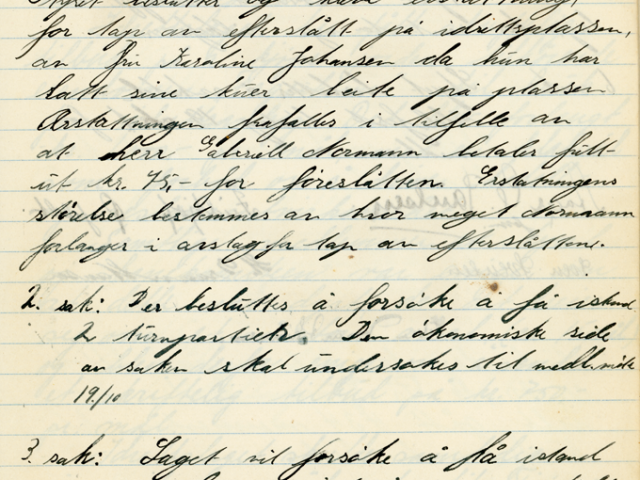 for tap av efterslått på idrettsplassen,
av fru Karoline Johansen da hun har
latt sine kuer beite på plassen
Erstattningen frafalles i tilfelle av
at herr Gabriell Normann betaler fullt
ut kr. 75,- for föreslåtten. Erstatningens
störelse bestemmes av hvor meget Normann
forlanger i avslag for tap av efterslåttene.
2. sak: Det besluttes å forsöke å få istand
2 turnpartier. Den ökonomiske side
av saken skal undersökes til medl.möte
19./10
3. sak: Laget vil forsöke å få istand